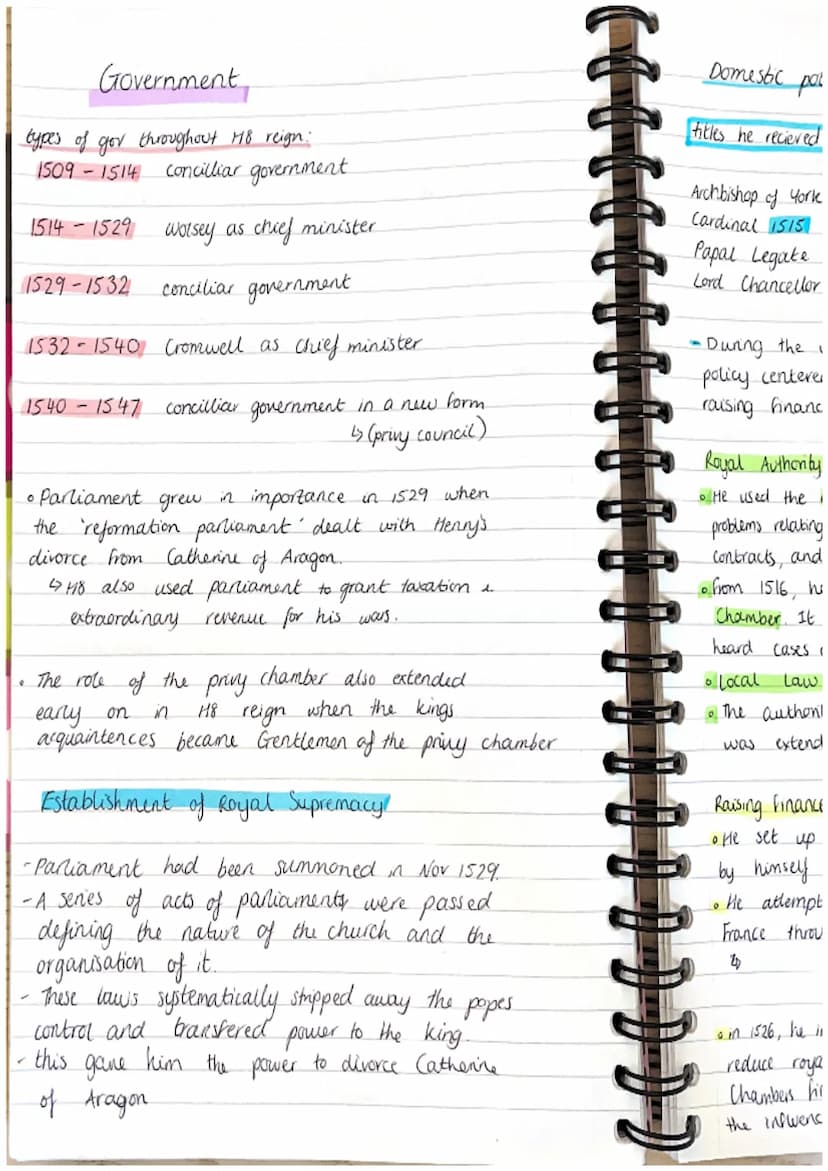 Government
types of gov throughout H8 reign:
1509 - 1514 concilliar government
1514 - 1529 wolsey as chief minister
1529 - 1532 conciliar government
1532 - 1540 Cromwell as chief minister
1540 - 1547 concilliar government in a new form
↳ (privy council)
• Parliament grew in importance in 1529 when
the 'reformation parliament' dealt with Henry's
divorce from Catherine of Aragon.
↳ H8 also used parliament to grant taxation &
extraordinary revenue for his wars.
• The role of the privy chamber also extended
early on in H8 reign when the kings
acquaintences became Gentlemen of the privy chamber
Establishment of Royal Supremacy
- Parliament had been summoned in Nov 1529.
- A series of acts of parliaments were passed
defining the nature of the church and the
organisation of it.
- These laws systematically stripped away the popes
control and transfered power to the king.
- this gave him the power to divorce Catherine
of Aragon
Domestic pol
titles he recieved
Archbishop of York
Cardinal 1515
Papal Legate
Lord Chancellor
- During the
policy centere
raising financ
Royal Authority
• He used the
problems relating
contracts, and
• from 1516, he
Chamber. It
heard cases
• Local Law
• The authori
was extend
Raising Finance
• He set up
by himself
• He attempt
France throu
↳
• in 1526, he i
reduce roya
Chambers fi
the influenc